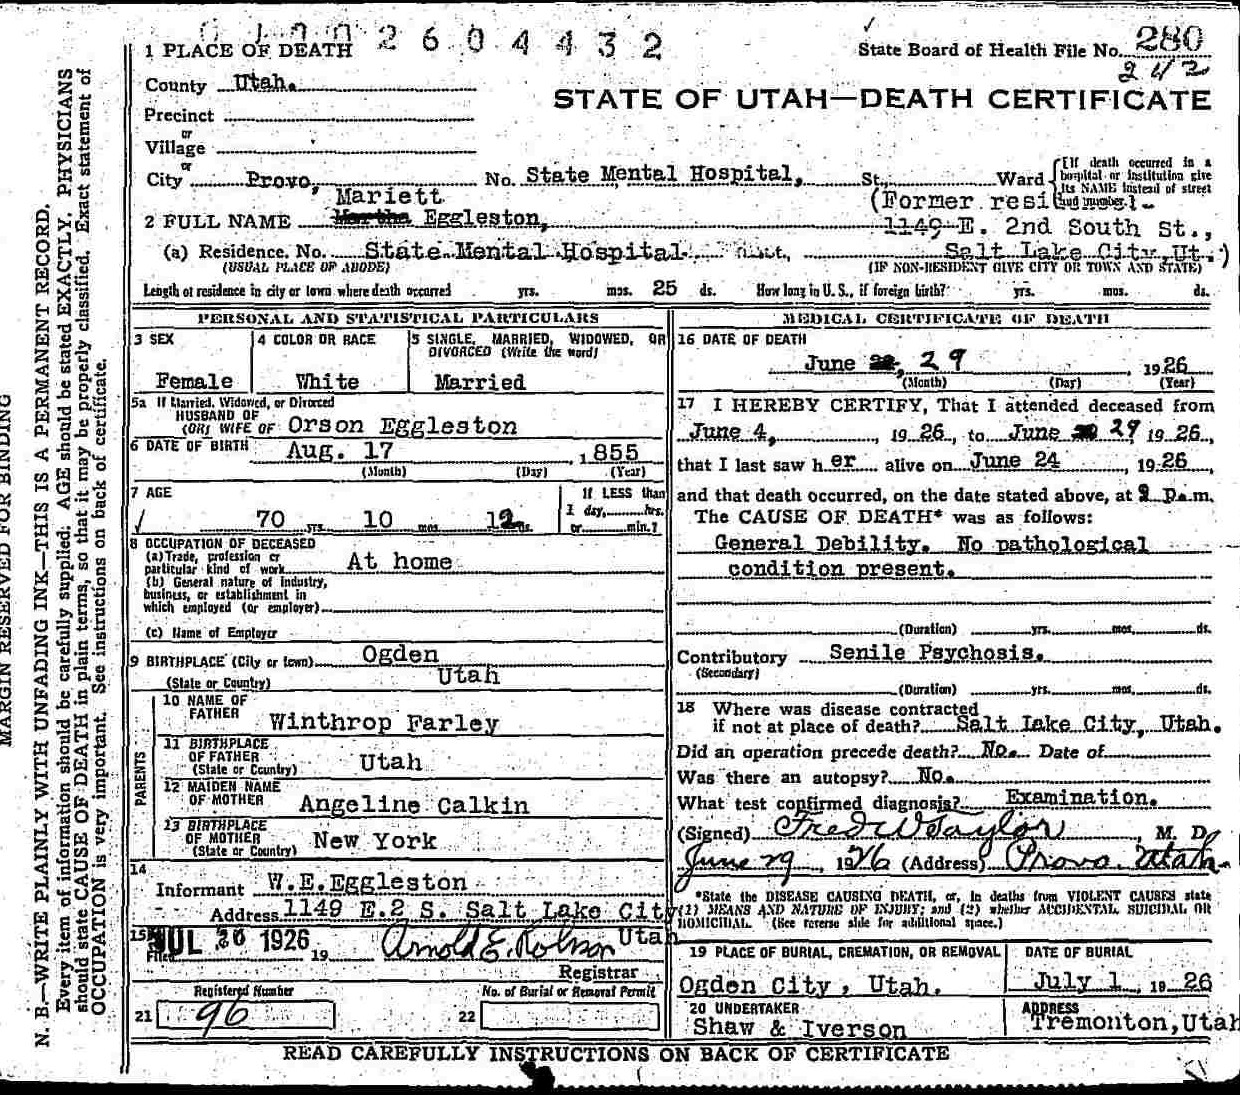 01002604432
1 PLACE OF DEATH
State Board of Health File No. 280
242
County Utah.
STATE OF UTAH—DEATH CERTIFICATE
Precinct
or
Village
or
City Provo, No. State Mental Hospital, St., Ward
[If death occurred in a hospital or institution give its NAME instead of street and number.]
Mariett
(Former resi
2 FULL NAME Martha Eggleston, 1149 E. 2nd South St.,
(a) Residence. No. State Mental Hospital Salt Lake City, Ut.)
(USUAL PLACE OF ABODE) (IF NON-RESIDENT GIVE CITY OR TOWN AND STATE)
Length of residence in city or town where death occurred yrs. mos. 25 ds. How long in U. S., if foreign birth? yrs. mos. ds.
PERSONAL AND STATISTICAL PARTICULARS
3 SEX
Female
4 COLOR OR RACE
White
5 SINGLE, MARRIED, WIDOWED, OR
DIVORCED (Write the word)
Married
5a If Married, Widowed, or Divorced
HUSBAND OF
(OR) WIFE OF Orson Eggleston
6 DATE OF BIRTH Aug. 17 , 1855
(Month) (Day) (Year)
7 AGE
70 yrs. 10 mos. 12 ds.
If LESS than
1 day, hrs.
or min.?
8 OCCUPATION OF DECEASED
(a) Trade, profession or
particular kind of work At home
(b) General nature of industry,
business, or establishment in
which employed (or employer)
(c) Name of Employer
9 BIRTHPLACE (City or town) Ogden
(State or Country) Utah
PARENTS
10 NAME OF
FATHER Winthrop Farley
11 BIRTHPLACE
OF FATHER
(State or Country) Utah
12 MAIDEN NAME
OF MOTHER Angeline Calkin
13 BIRTHPLACE
OF MOTHER
(State or Country) New York
14
Informant W.E.Eggleston
Address 1149 E.2 S. Salt Lake City
Utah
15 Filed JUL 20 1926 19 Arnold E. Robison
Registrar
Registered Number
21 96
No. of Burial or Removal Permit
22
MEDICAL CERTIFICATE OF DEATH
16 DATE OF DEATH
June 29 , 1926
(Month) (Day) (Year)
17 I HEREBY CERTIFY, That I attended deceased from
June 4, , 1926, to June 29 1926,
that I last saw her alive on June 24 , 1926,
and that death occurred, on the date stated above, at p.m.
The CAUSE OF DEATH* was as follows:
General Debility. No pathological
condition present.
(Duration) yrs. mos. ds.
Contributory Senile Psychosis.
(Secondary)
(Duration) yrs. mos. ds.
18 Where was disease contracted
if not at place of death? Salt Lake City, Utah.
Did an operation precede death? No. Date of
Was there an autopsy? No.
What test confirmed diagnosis? Examination.
(Signed) Fred W Taylor , M. D.
June 29, 1926 (Address) Provo Utah
*State the DISEASE CAUSING DEATH, or, in deaths from VIOLENT CAUSES state
(1) MEANS AND NATURE OF INJURY; and (2) whether ACCIDENTAL, SUICIDAL OR
HOMICIDAL. (See reverse side for additional space.)
19 PLACE OF BURIAL, CREMATION, OR REMOVAL
Ogden City, Utah.
DATE OF BURIAL
July 1, 19 26
20 UNDERTAKER
Shaw & Iverson
ADDRESS
Tremonton,Utah
READ CAREFULLY INSTRUCTIONS ON BACK OF CERTIFICATE
MARGIN RESERVED FOR BINDING
N. B.—WRITE PLAINLY WITH UNFADING INK—THIS IS A PERMANENT RECORD.
Every item of information should be carefully supplied. AGE should be stated EXACTLY. PHYSICIANS
should state CAUSE OF DEATH in plain terms, so that it may be properly classified. Exact statement of
OCCUPATION is very important. See instructions on back of certificate.